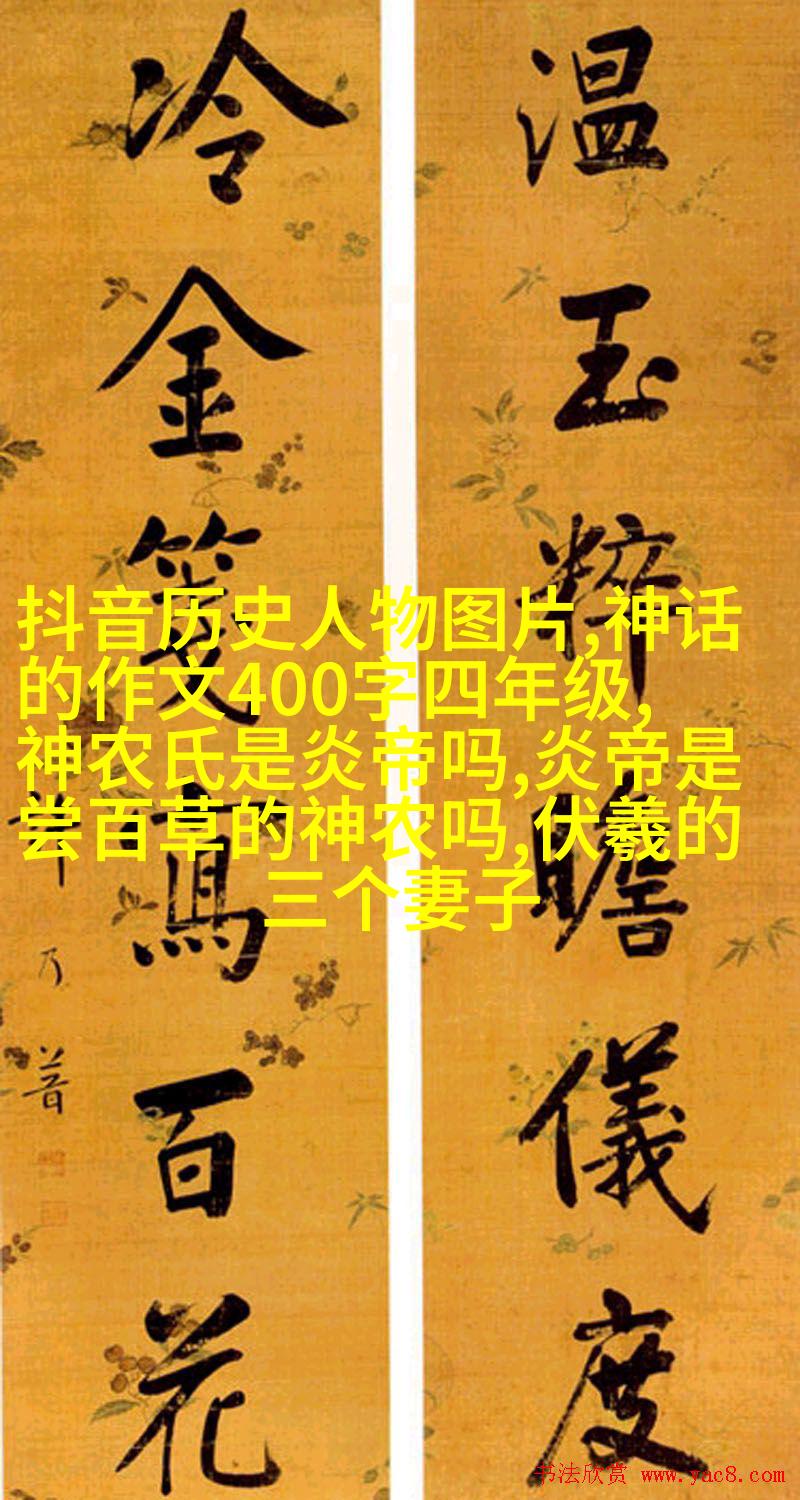 温玉粹瞻儀度
冷金箋寫百花
許乃普
抖音历史人物图片,神话
的作文400字四年级,
神农氏是炎帝吗,炎帝是
尝百草的神农吗,伏羲的
三个妻子
书法欣赏 www.yac8.com